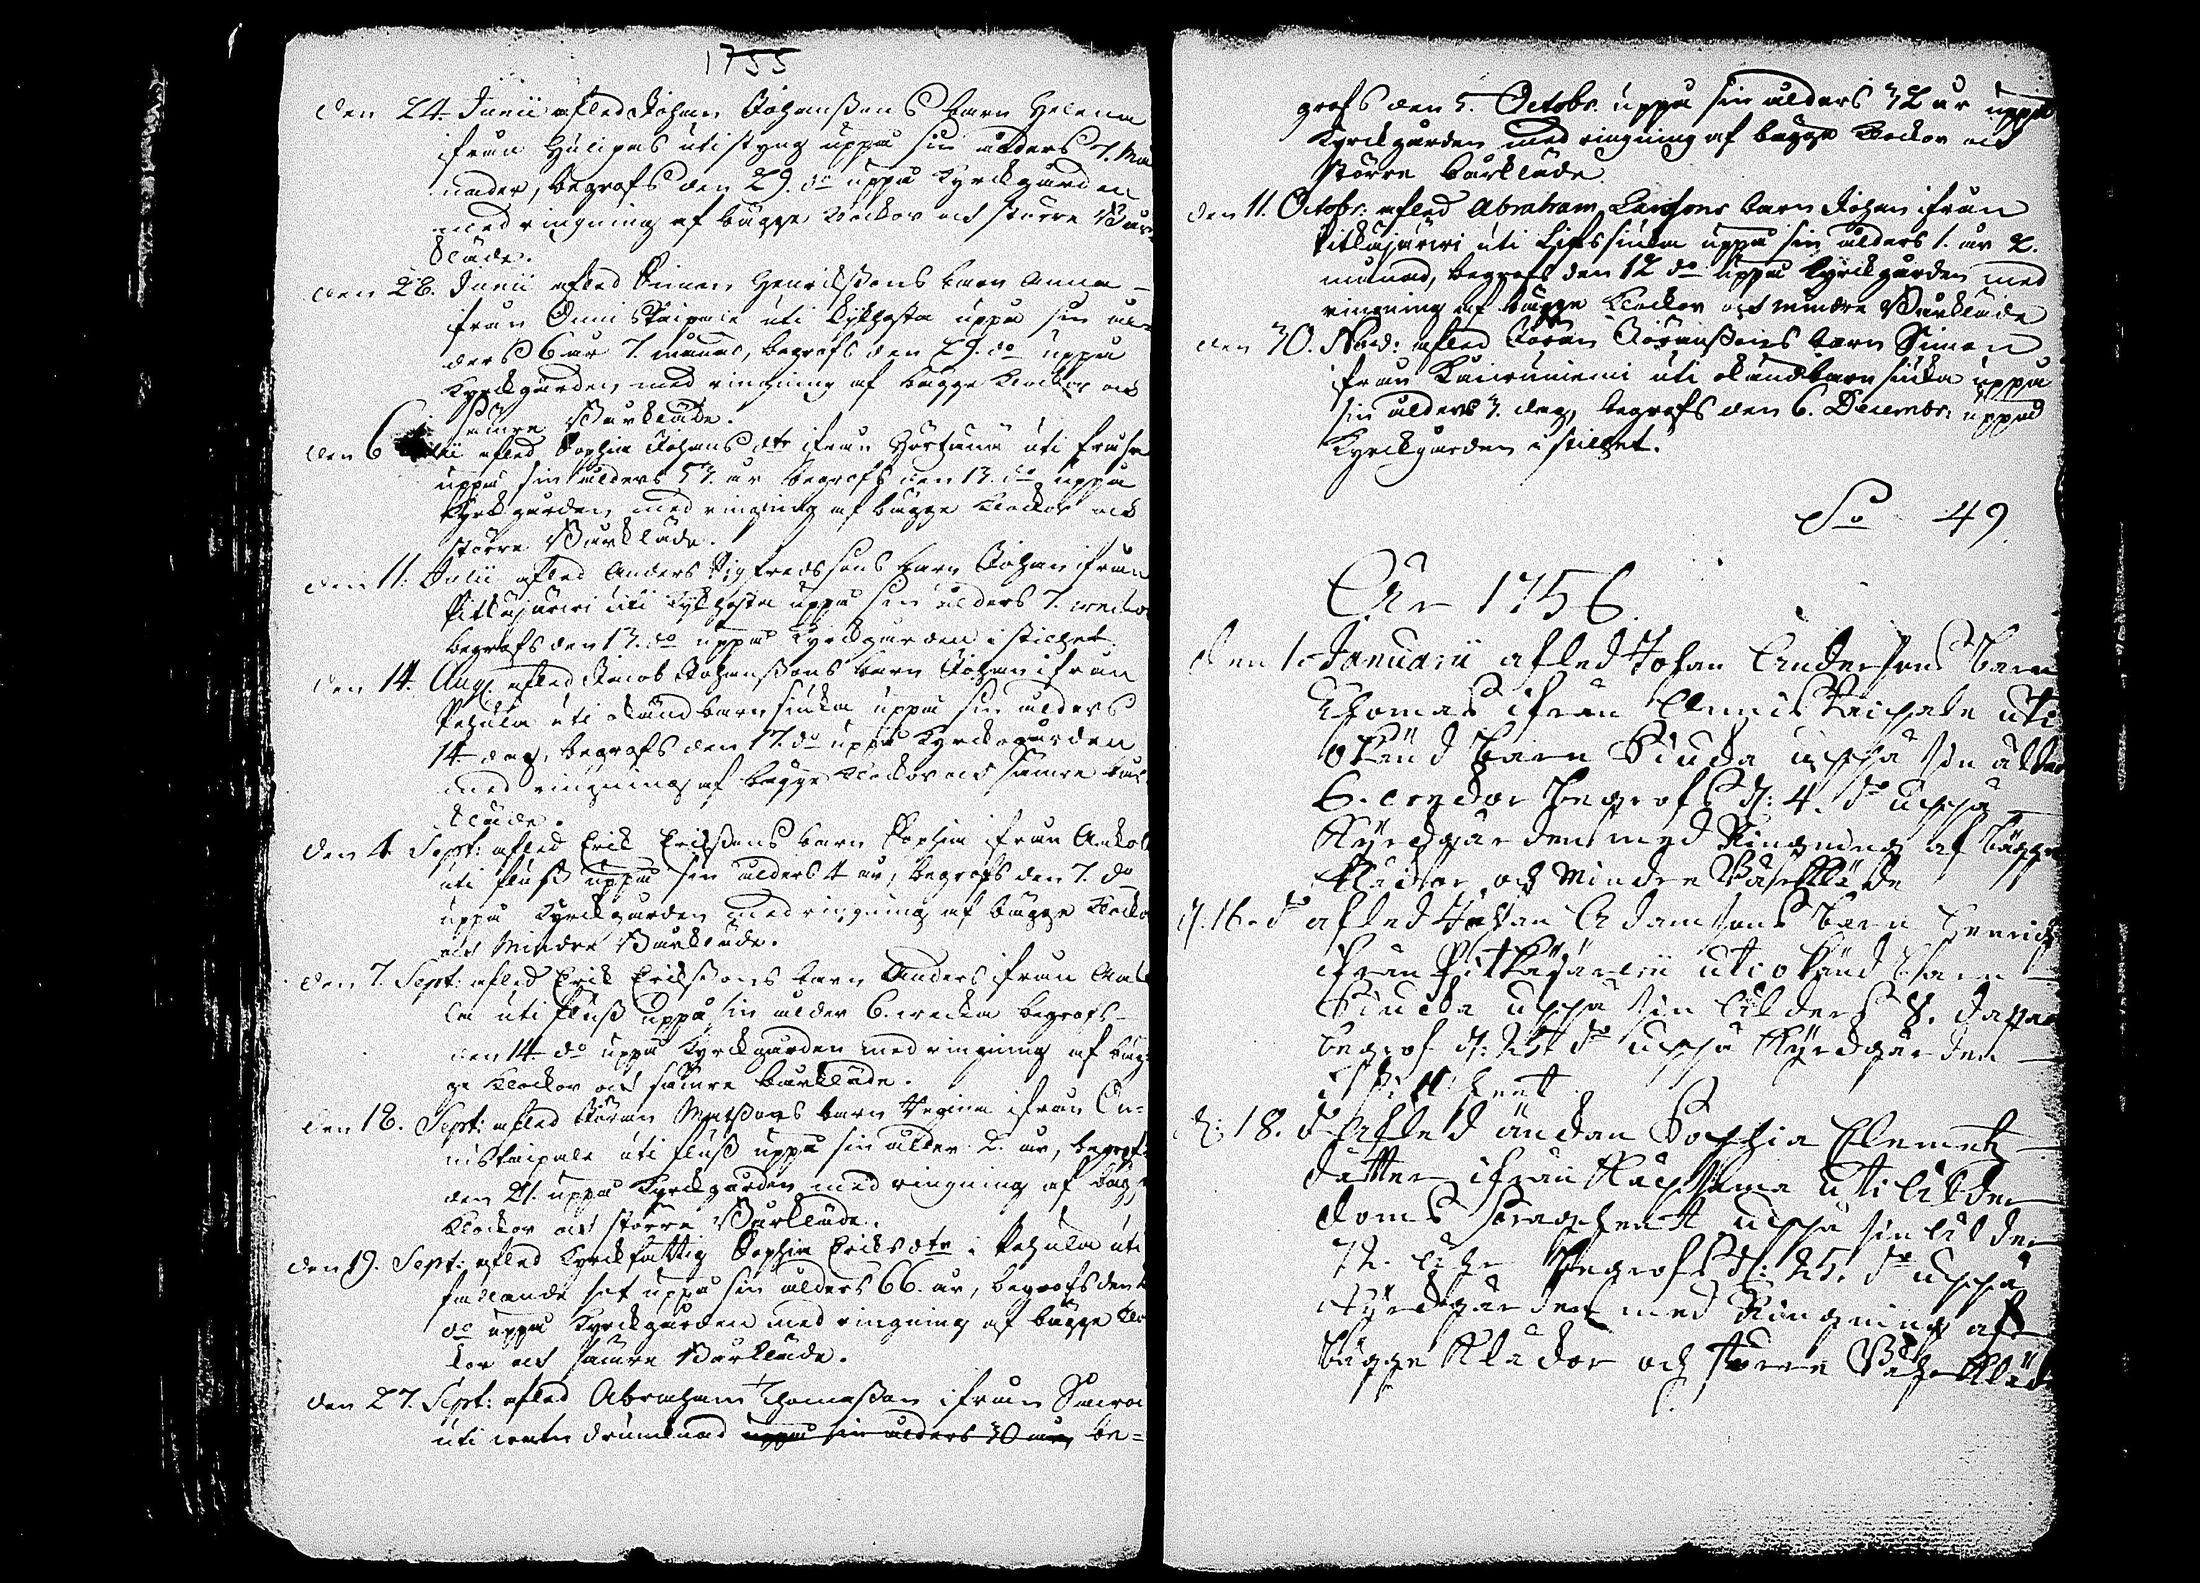 1755
Den 24 Junii afled Johan Johanßons barn Helena
ifrån uti styng uppå sin ålders 7. må
nader, begrofs den 29. do uppå Kyrckgården
med ringning af bägge klockor och större Bår-
kläde.
den 28. Junii afled Simon Henrickßons barn Anna
ifrån Onnistaipale uti Kikhosta uppå sin ål-
ders 6 år 7. månad, begrofs den 29. do uppå
Kyrckgården, med ringning af bägge klockor och
sämre Bårkläde.
den 6 afled Sophia Johans dtr ifrån uti
uppå sin ålders 53. år begrofs den 13. do uppå
Kyrckgården med ringning af bägge klockor och
större Bårkläde.
den 11. Julii afled Anders Sigfredssons barn Johan ifrån
Pitkäjärwi uti Kikhosta uppå sin ålders 7. weckor
begrofs den 13. do uppå Kyrckgården i stillhet.
den 14. Aug. afled Jacob Johanßons barn Johan ifrån
Pehula uti okänd barnsiuka uppå sin ålders
14 dag, begrofs den 17. do uppå Kyrckogården
med ringning af bägge klockor och sämre bår
kläde.
den 4. Sept: afled Erik Erikßons barn Sophia ifrån
uti fluß uppå sin ålders 4 år, begrofs den 7. do
uppå Kyrckgården med ringning af bägge klocko
och Mindre Bårkläde.
den 7. Sept: afled Erik Erikßons barn Anders ifrån
la uti fluß uppå sin ålder 6. wecka begrofs
den 14 do uppå Kyrckgården med ringning af bäg
ge klockor och sämre bårkläde.
den 18. Sept: afled Jöran Matßons barn Regina ifrån On-
nistaipale uti fluß uppå sin ålder 2. år, begrofs
den 21. uppå Kyrckgården med ringning af bägg
klockor och större Bårkläde.
den 19. Sept: afled Kyrckfattig Sophia Eriks dtr i Pehula uti
fallande sot uppå sin ålders 66. år, begrofs den
do uppå Kyrckgården med ringning af bägge klo
kor och sämre Bårkläde.
den 27. Sept: afled Abraham Thomaßon ifrån
uti watn drunknad uppå sin ålders 30 år, be-
grofs den 5. Octobr. uppå sin ålders 32 år uppå
Kyrckgården med ringning af bägge klockor och
större bårkläde.
den 11. Octobr: afled Abraham Larssons barn Johan ifrån
Pitkäjärwi uti uppå sin ålders 1. år 2.
månad, begrofs den 12 do uppå Kyrckgården med
ringning af bägge klockor och mindre Bårkläde
den 30. Novb: afled Jöran Jöranßons barn Simon
ifrån uti okänd barnsiuka uppå
sin ålders 3. dag, begrofs den 6. Decembr: uppå
Kyrckgården i stillhet.
Sa 49
År 1756
Den 1. Januarii afled Johan Andersons barn
Thomas ifrån Onnistaipale uti
okänd barn Siuka uppå sin ålder
6. weckor begrofs d: 4. do uppå
Kyrckgården med Ringning af bägge
Klåckor och Mindre Bårkläde
d. 16. do afled Johan Adamsons barn Henrich
ifrån Pitkäjärwi uti okänd barn
Siucka uppå sin ålders 8. dagar
begrof d: 25 do uppå Kyrckgården
i stillheet
d: 18. do afled änckan Sophia Clemetz
dotter ifrån uti ålder
doms uppå sin ålder
72. åhr begrofs d: 25. do uppå
Kyrckgården med Ringning af
bägge Klåckor och större Båhrkläde